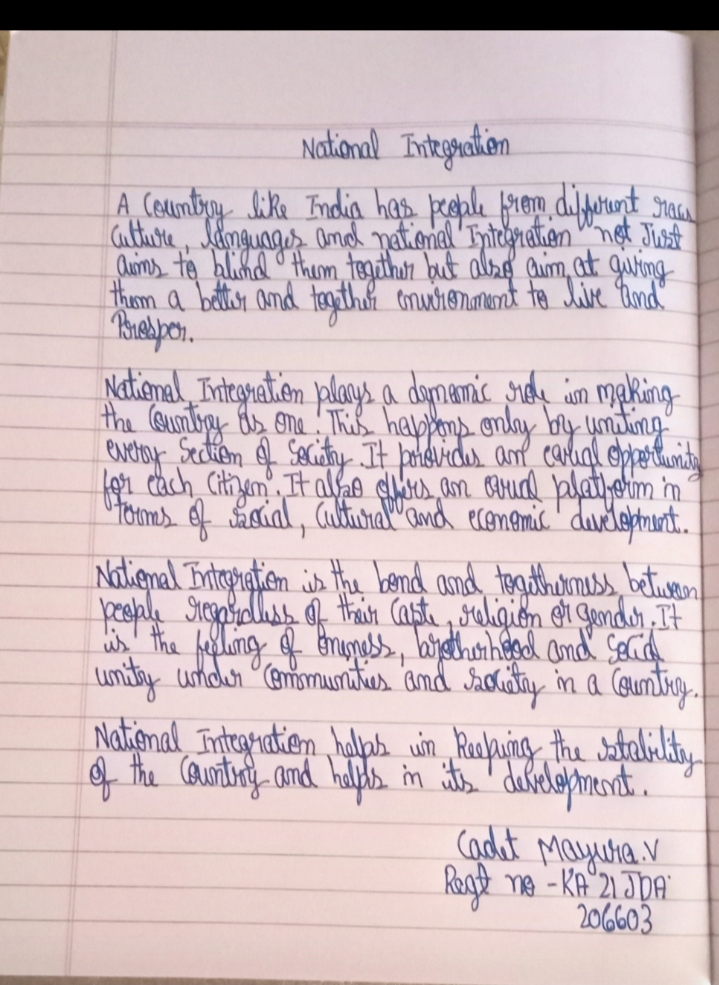 National Integration
A Country like India has people from different races
Culture, languages and national Integration not Just
aims to blind them together but also aim at giving
them a better and together environment to live and
Prosper.
National Integration plays a dynamic role in making
the Country as one. This happens only by uniting
every Section of Society. It provides an equal opportunity
for each Citizen. It also offers an equal platform in
terms of social, Cultural and economic development.
National Integration is the bond and togetherness between
people regardless of their Caste, religion or gender. It
is the feeling of oneness, brotherhood and Social
unity under Communities and society in a Country.
National Integration helps in Keeping the stability
of the Country and helps in its development.
Cadet Mayura.V
Regt no - KA 21 JDA
206603